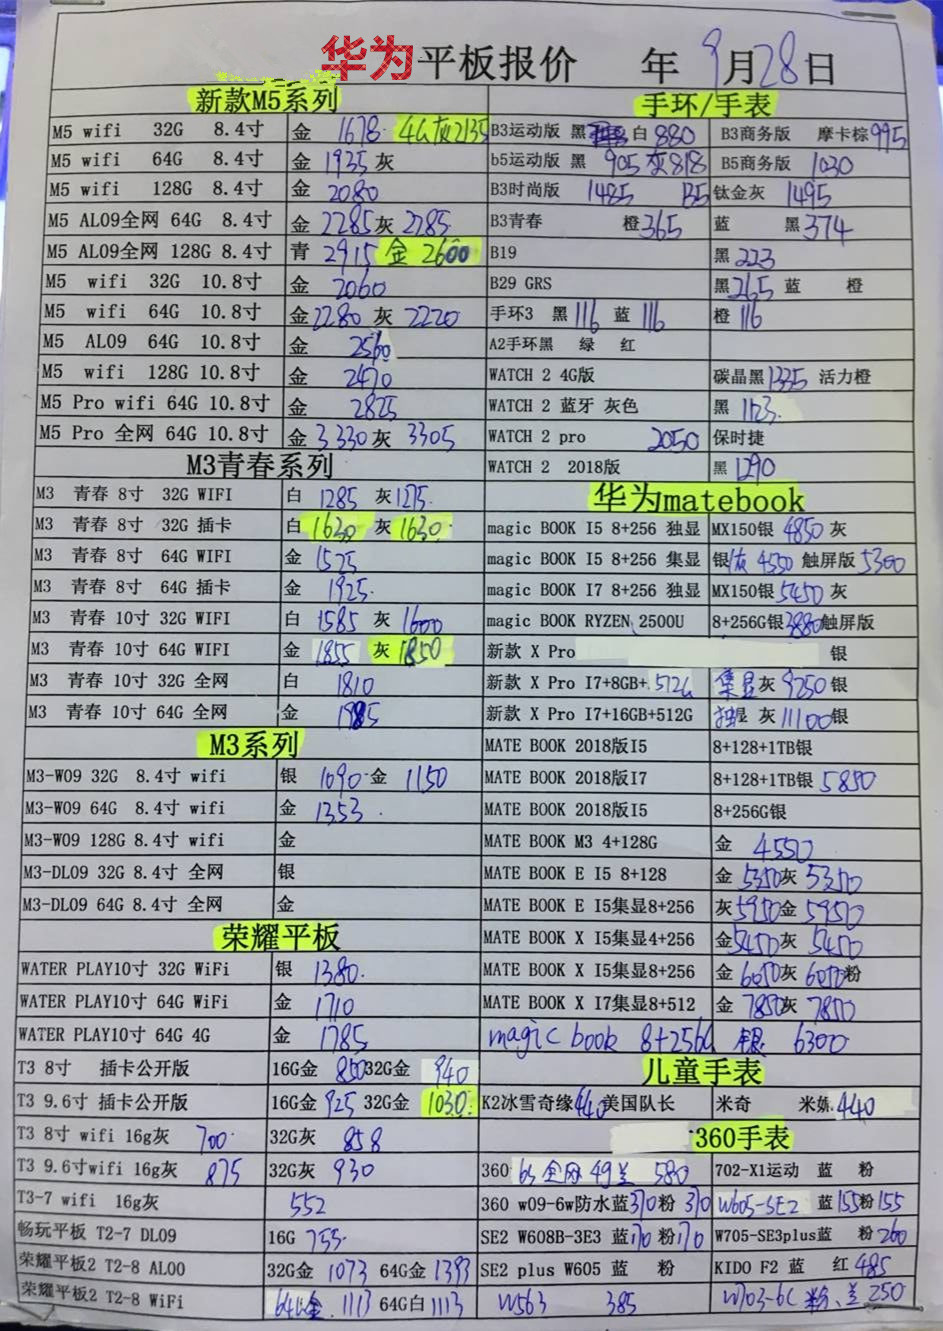 华为平板报价 年 9月28日
新款M5系列
M5 wifi 32G 8.4寸 金 1678 4G灰2135
M5 wifi 64G 8.4寸 金 1935 灰
M5 wifi 128G 8.4寸 金 2080
M5 AL09全网 64G 8.4寸 金 2285 灰 2285
M5 AL09全网 128G 8.4寸 青 2915 金 2600
M5 wifi 32G 10.8寸 金 2060
M5 wifi 64G 10.8寸 金 2280 灰 2220
M5 AL09 64G 10.8寸 金 2560
M5 wifi 128G 10.8寸 金 2470
M5 Pro wifi 64G 10.8寸 金 2825
M5 Pro 全网 64G 10.8寸 金 3330 灰 3305
M3青春系列
M3 青春 8寸 32G WIFI 白 1285 灰 1275
M3 青春 8寸 32G 插卡 白 1630 灰 1630
M3 青春 8寸 64G WIFI 金 1575
M3 青春 8寸 64G 插卡 金 1925
M3 青春 10寸 32G WIFI 白 1585 灰 1600
M3 青春 10寸 64G WIFI 金 1855 灰 1850
M3 青春 10寸 32G 全网 白 1810
M3 青春 10寸 64G 全网 金 1985
M3系列
M3-W09 32G 8.4寸 wifi 银 1090 金 1150
M3-W09 64G 8.4寸 wifi 金 1353
M3-W09 128G 8.4寸 wifi 金
M3-DL09 32G 8.4寸 全网 银
M3-DL09 64G 8.4寸 全网 金
荣耀平板
WATER PLAY10寸 32G WiFi 银 1380
WATER PLAY10寸 64G WiFi 金 1710
WATER PLAY10寸 64G 4G 金 1785
T3 8寸 插卡公开版 16G金 850 32G金 940
T3 9.6寸 插卡公开版 16G金 925 32G金 1030
T3 8寸 wifi 16g灰 700 32G灰 858
T3 9.6寸wifi 16g灰 875 32G灰 930
T3-7 wifi 16g灰 552
畅玩平板 T2-7 DL09 16G 755
荣耀平板2 T2-8 AL00 32G金 1073 64G金 1393
荣耀平板2 T2-8 WiFi 64G金 1113 64G白 1113
手环/手表
B3运动版 黑 白 880 B3商务版 摩卡棕 995
b5运动版 黑 905 灰818 B5商务版 1030
B3时尚版 1485 B5 钛金灰 1495
B3青春 橙 365 蓝 黑 374
B19 黑 223
B29 GRS 黑 265 蓝 橙
手环3 黑 116 蓝 116 橙 116
A2手环黑 绿 红
WATCH 2 4G版 碳晶黑 1335 活力橙
WATCH 2 蓝牙 灰色 黑 1123
WATCH 2 pro 2050 保时捷
WATCH 2 2018版 黑 1290
华为matebook
magic BOOK I5 8+256 独显 MX150银 4850 灰
magic BOOK I5 8+256 集显 银/灰 4550 触屏版 5300
magic BOOK I7 8+256 独显 MX150银 5450 灰
magic BOOK RYZEN 2500U 8+256G银 3880 触屏版
新款 X Pro 银
新款 X Pro I7+8GB+512G 集显 灰 9250 银
新款 X Pro I7+16GB+512G 独显 灰 11100 银
MATE BOOK 2018版I5 8+128+1TB银
MATE BOOK 2018版I7 8+128+1TB银 5850
MATE BOOK 2018版I5 8+256G银
MATE BOOK M3 4+128G 金 4550
MATE BOOK E I5 8+128 金 5350 灰 5350
MATE BOOK E I5集显8+256 灰 5950 金 5950
MATE BOOK X I5集显4+256 金 5450 灰 5450
MATE BOOK X I5集显8+256 金 6050 灰 6050 粉
MATE BOOK X I7集显8+512 金 7850 灰 7850
magic book 8+256G 银 6300
儿童手表
K2冰雪奇缘 440 美国队长 米奇 米妮 440
360手表
360 6S全网49兰 580 702-X1运动 蓝 粉
360 w09-6w防水蓝 370 粉 370 W605-SE2 蓝 155 粉 155
SE2 W608B-3E3 蓝 170 粉 170 W705-SE3plus蓝 粉 260
SE2 plus W605 蓝 粉 KIDO F2 蓝 红 485
W563 385 W703-6C 粉、兰 250